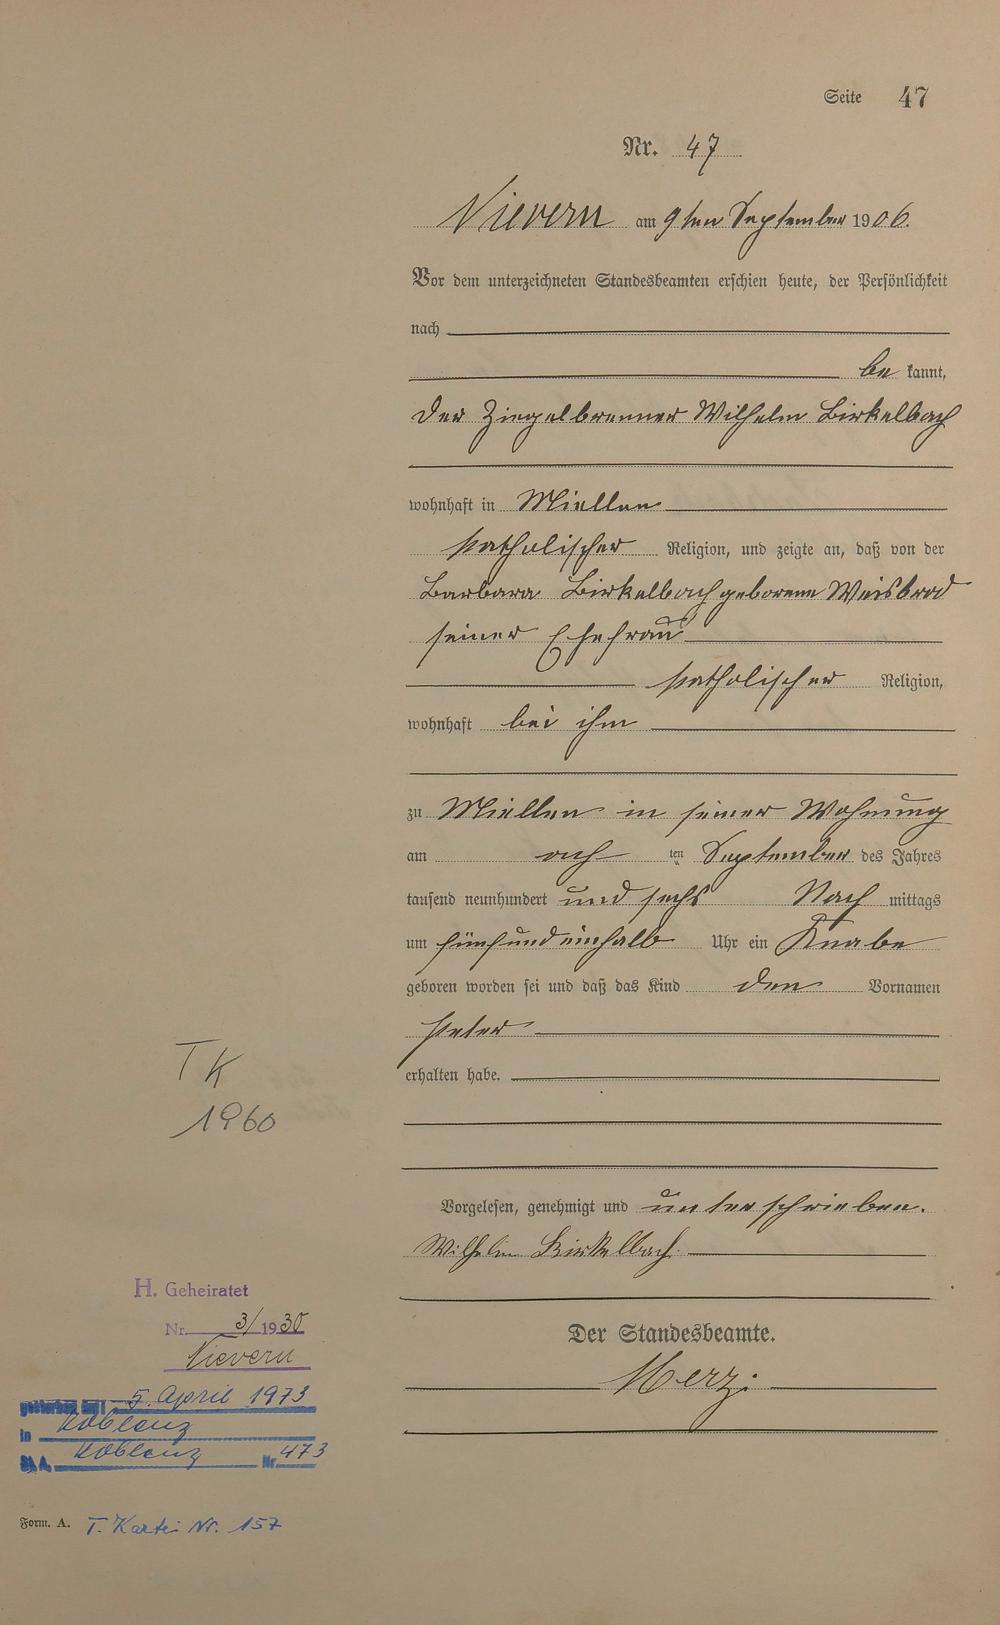 Seite 47
Nr. 47
Nievern am 9ten September 1906.
Vor dem unterzeichneten Standesbeamten erschien heute, der Persönlichkeit
nach
be kannt,
der Ziegelbrenner Wilhelm Birkelbach
wohnhaft in Miellen
katholischer Religion, und zeigte an, daß von der
Barbara Birkelbach geborene Weisbrod
seiner Ehefrau
katholischer Religion,
wohnhaft bei ihm
zu Miellen in seiner Wohnung
am ach ten September des Jahres
tausend neunhundert und sechs Nach mittags
um fünfundeinhalb Uhr ein Knabe
geboren worden sei und daß das Kind den Vornamen
Peter
erhalten habe.
Vorgelesen, genehmigt und unterschrieben.
Wilhelm Birkelbach.
Der Standesbeamte.
Merz.
TK
1960
H. Geheiratet
Nr. 3/1930
Nievern
gestorben am 5. April 1973
in Koblenz
St. A. Koblenz Nr. 473
Form. A. T. Kartei Nr. 157